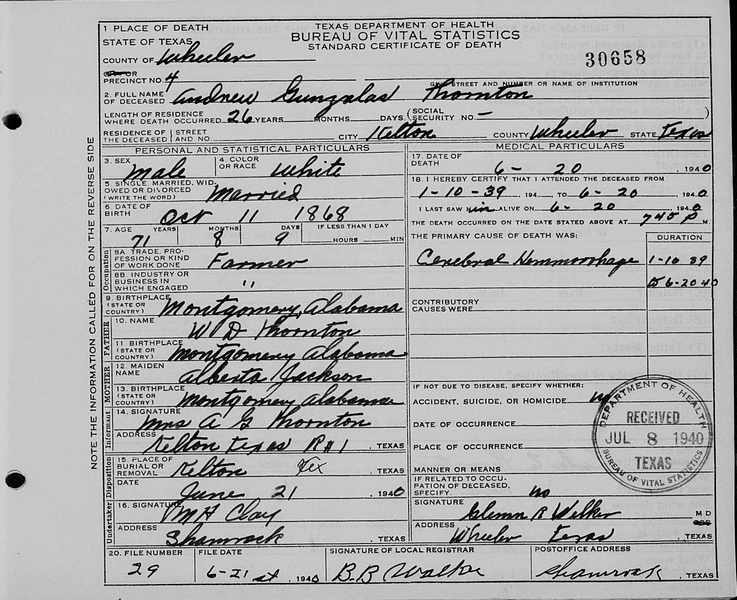 TEXAS DEPARTMENT OF HEALTH
BUREAU OF VITAL STATISTICS
STANDARD CERTIFICATE OF DEATH
30658
NOTE THE INFORMATION CALLED FOR ON THE REVERSE SIDE
1 PLACE OF DEATH
STATE OF TEXAS
COUNTY OF Wheeler
CITY OR
PRECINCT NO. 4
GIVE STREET AND NUMBER OR NAME OF INSTITUTION
2. FULL NAME OF DECEASED Andrew Gunzalas Thornton
LENGTH OF RESIDENCE WHERE DEATH OCCURRED 26 YEARS MONTHS DAYS (SOCIAL SECURITY NO. —
RESIDENCE OF THE DECEASED STREET AND NO. CITY Kelton COUNTY Wheeler STATE Texas
PERSONAL AND STATISTICAL PARTICULARS
3. SEX Male
4. COLOR OR RACE White
5. SINGLE, MARRIED, WIDOWED OR DIVORCED (WRITE THE WORD) Married
6. DATE OF BIRTH Oct 11 1868
7. AGE YEARS 71 MONTHS 8 DAYS 9 IF LESS THAN 1 DAY HOURS MIN
Occupation
8A. TRADE, PROFESSION OR KIND OF WORK DONE Farmer
8B. INDUSTRY OR BUSINESS IN WHICH ENGAGED "
9. BIRTHPLACE (STATE OR COUNTRY) Montgomery, Alabama
FATHER
10. NAME W D Thornton
11 BIRTHPLACE (STATE OR COUNTRY) Montgomery Alabama
MOTHER
12. MAIDEN NAME Alberta Jackson
13. BIRTHPLACE (STATE OR COUNTRY) Montgomery Alabama
Informant
14. SIGNATURE Mrs A G Thornton
ADDRESS Kelton Texas R#1, TEXAS
Disposition
15. PLACE OF BURIAL OR REMOVAL Kelton Tex, TEXAS
DATE June 21, 1940
Undertaker
16. SIGNATURE M H Clay
ADDRESS Shamrock, TEXAS
MEDICAL PARTICULARS
17. DATE OF DEATH 6 - 20, 1940
18. I HEREBY CERTIFY THAT I ATTENDED THE DECEASED FROM
1-10-39 194 TO 6-20 1940
I LAST SAW him ALIVE ON 6 - 20 1940
THE DEATH OCCURRED ON THE DATE STATED ABOVE AT 745 P M.
THE PRIMARY CAUSE OF DEATH WAS: DURATION
Cerebral Hemmorrhage 1-10 39
to 6-20 40
CONTRIBUTORY CAUSES WERE
IF NOT DUE TO DISEASE, SPECIFY WHETHER:
ACCIDENT, SUICIDE, OR HOMICIDE no
DATE OF OCCURRENCE
PLACE OF OCCURRENCE
MANNER OR MEANS
IF RELATED TO OCCUPATION OF DECEASED, SPECIFY. no
SIGNATURE Glenn R Walker M D
ADDRESS Wheeler Texas, TEXAS
DEPARTMENT OF HEALTH
RECEIVED
JUL 8 1940
TEXAS
BUREAU OF VITAL STATISTICS
20. FILE NUMBER 29
FILE DATE 6-21 st, 1940
SIGNATURE OF LOCAL REGISTRAR B. B Walker
POSTOFFICE ADDRESS Shamrock, TEXAS